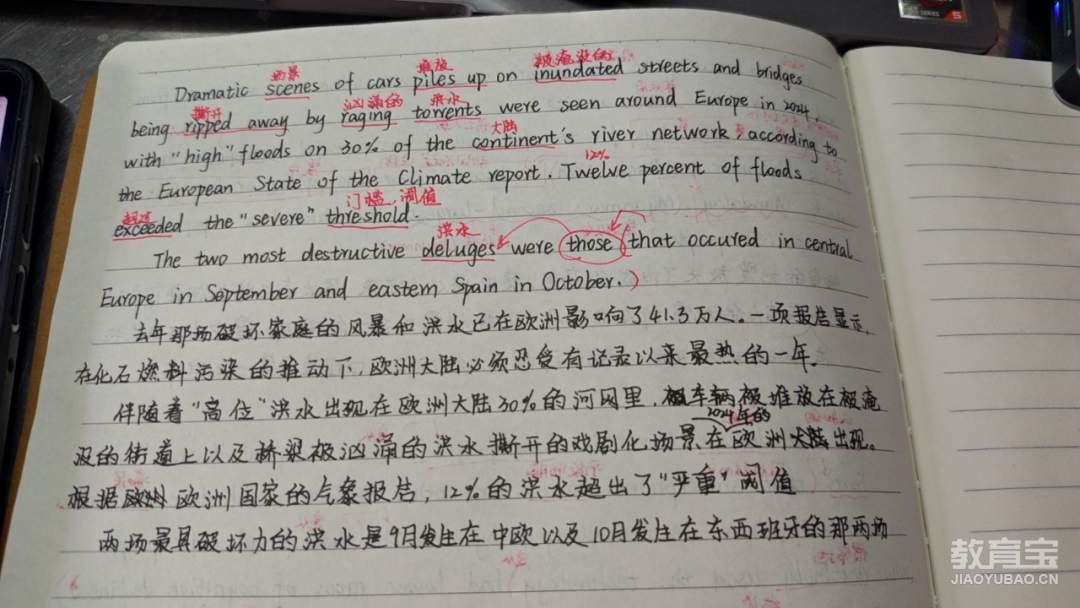 场景 堆放 被淹没的
Dramatic scenes of cars piles up on inundated streets and bridges
撕开 汹涌的 洪水
being ripped away by raging torrents were seen around Europe in 2024,
大陆
with "high" floods on 30% of the continent's river network, according to
12%
the European State of the Climate report. Twelve percent of floods
超过 门槛,阈值
exceeded the "severe" threshold.
洪水
The two most destructive deluges were those (that occured in central
Europe in September and eastern Spain in October.)
去年那场破坏家庭的风暴和洪水已在欧洲影响了41.3万人。一项报告显示,
在化石燃料污染的推动下,欧洲大陆必须忍受有记录以来最热的一年。
伴随着"高位"洪水出现在欧洲大陆30%的河网里,车辆被堆放在被淹
2024年的
没的街道上以及桥梁被汹涌的洪水撕开的戏剧化场景在欧洲大陆出现。
根据欧洲 欧洲国家的气象报告,12%的洪水超出了"严重"阈值
两场最具破坏力的洪水是9月发生在中欧以及10月发生在东西班牙的那两场
教育宝
JIAOYUBAO.CN